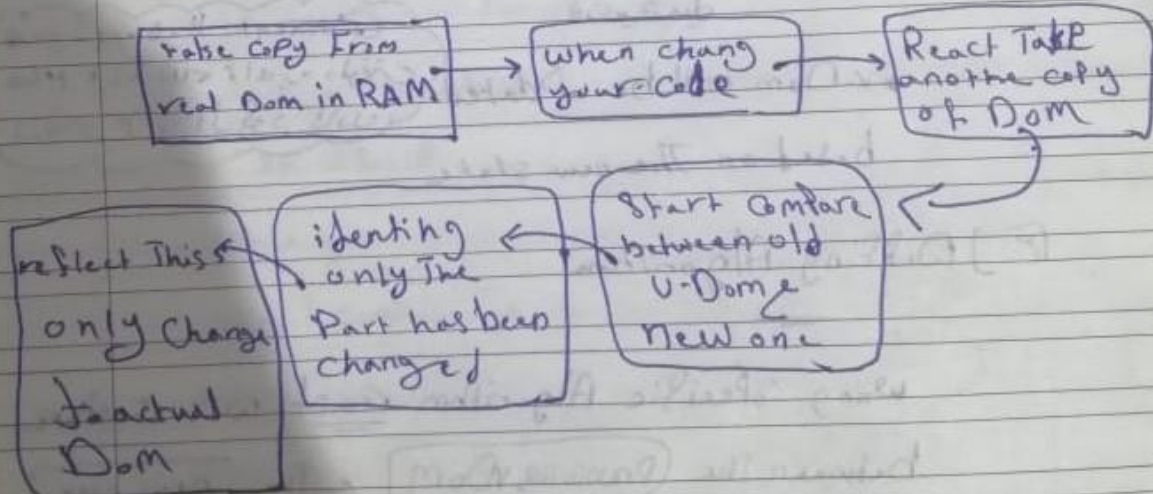 raise copy From
real Dom in RAM
when chang
your code
React Take
anothe copy
of Dom
Start Compare
between old
V-Dom &
new one
identing
only The
Part has been
changed
reflect This
only Change
to actual
Dom